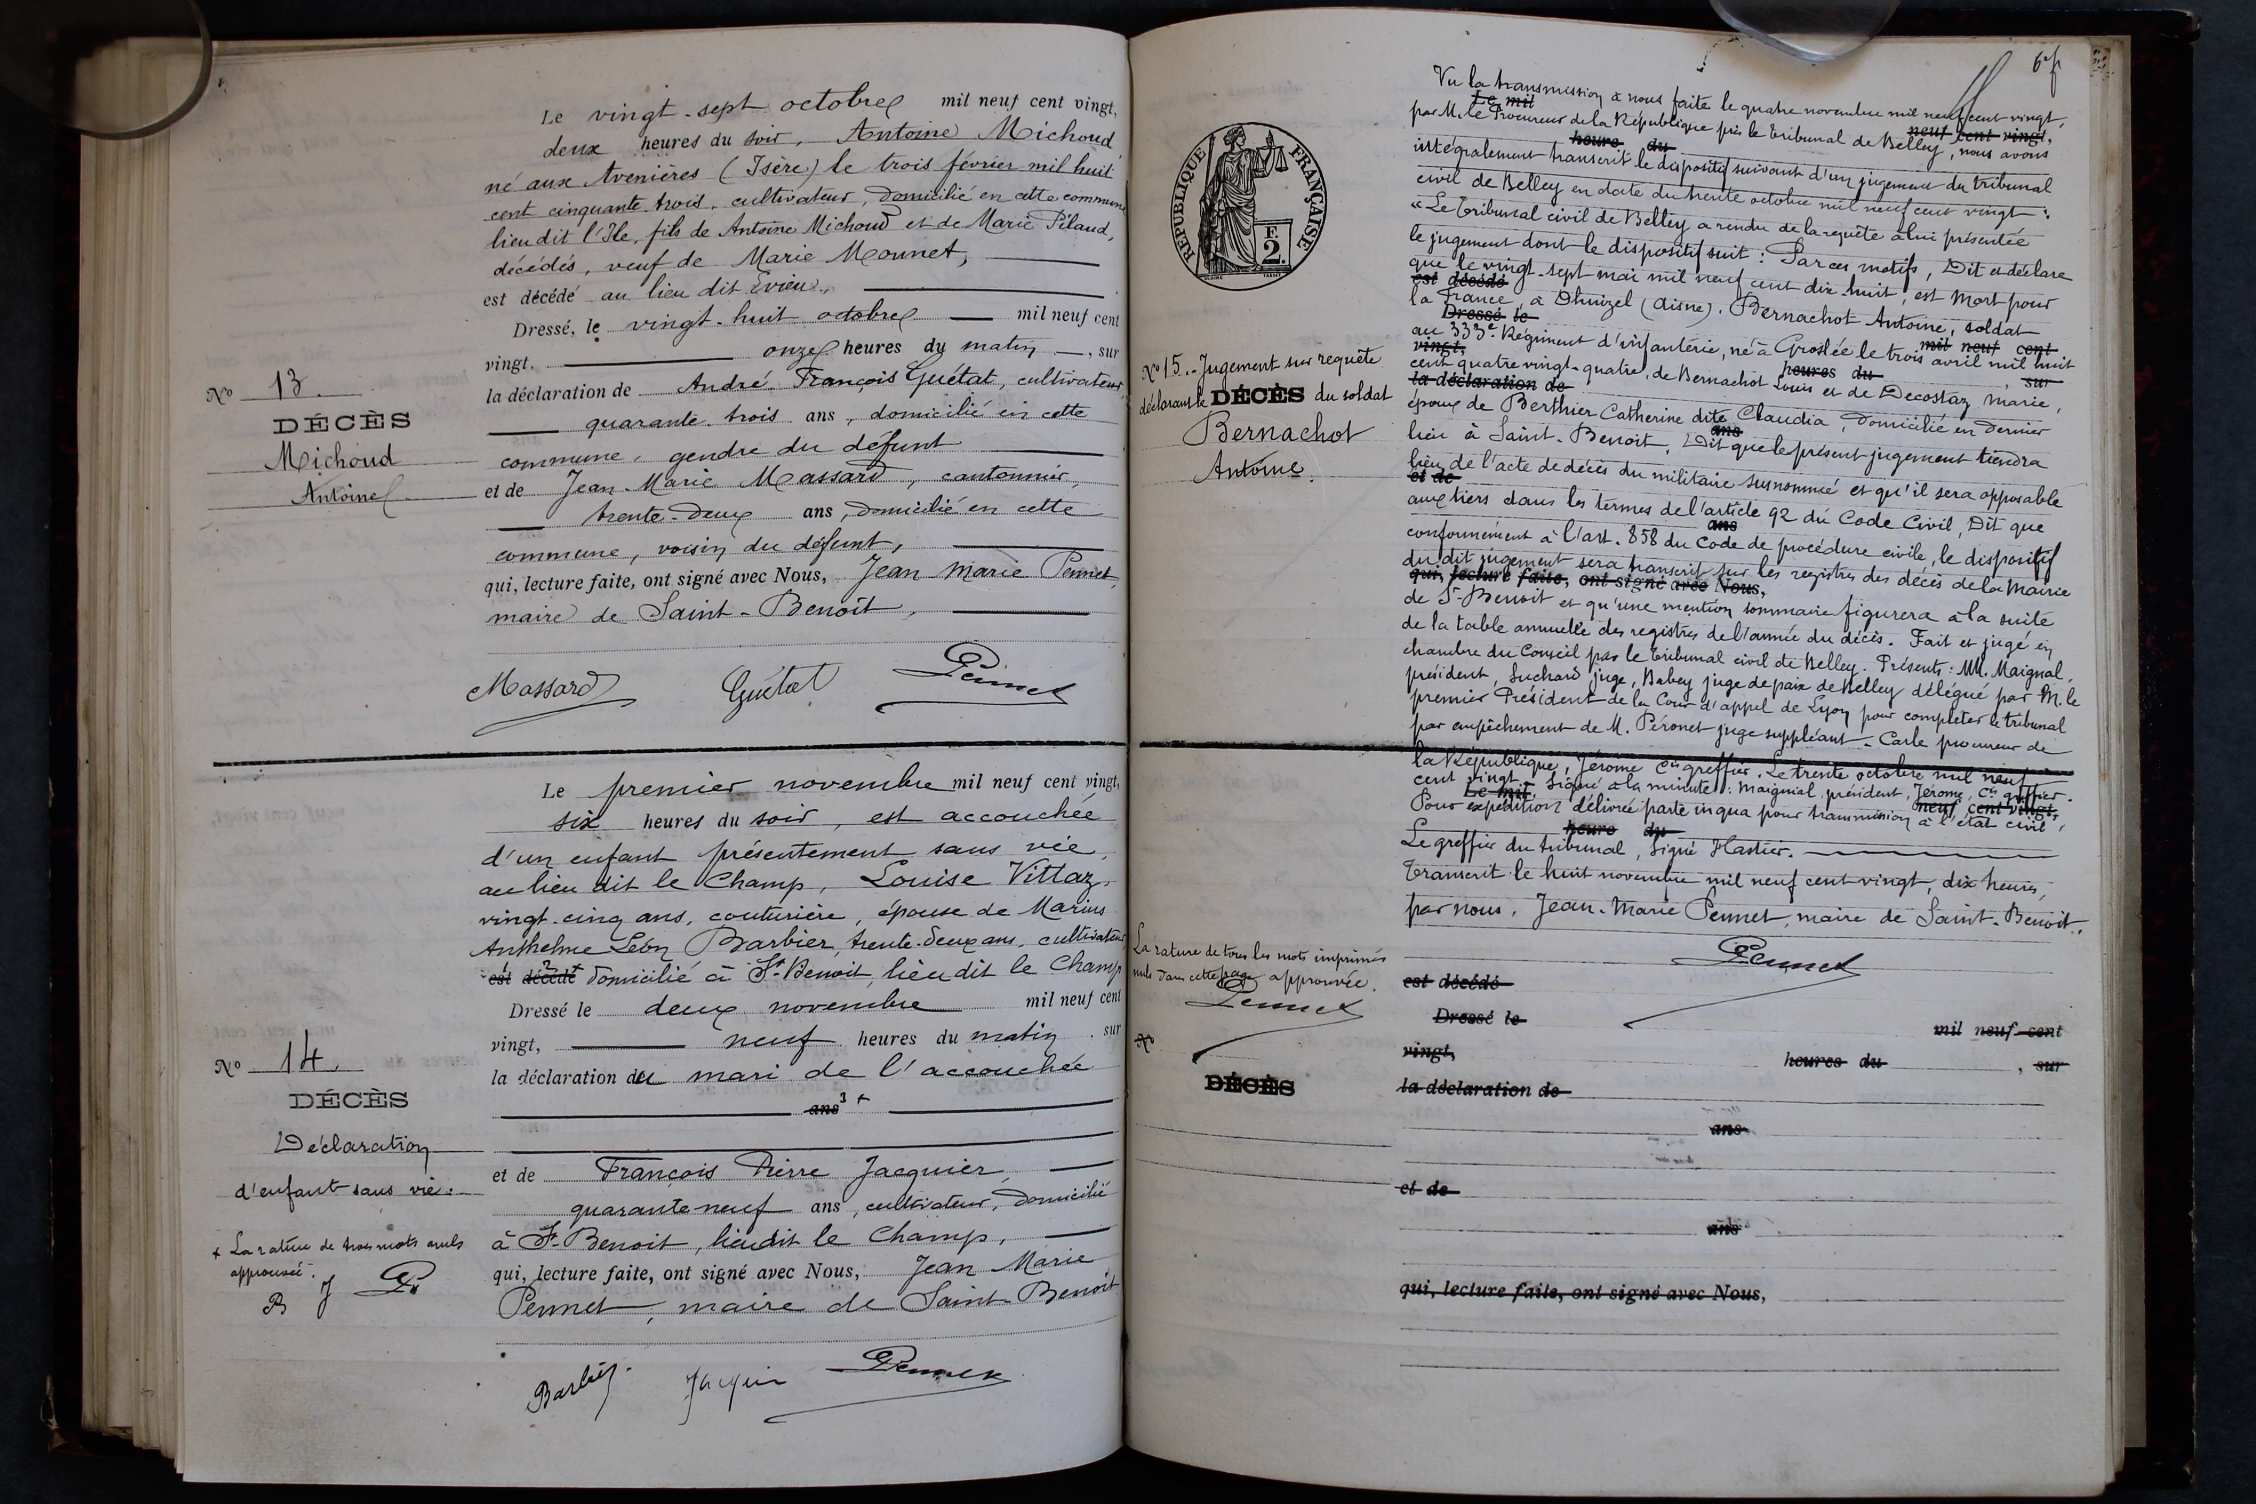 Le vingt-sept octobre mil neuf cent vingt,
deux heures du soir, Antoine Michoud,
né aux Avenières (Isère) le trois février mil huit
cent cinquante trois, cultivateur, domicilié en cette commune
lieu dit l'Ile, fils de Antoine Michoud et de Marie Pélaud,
décédés, veuf de Marie Mounet,
est décédé au lieu dit Evieu,
Dressé, le vingt-huit octobre mil neuf cent
vingt, onze heures du matin, sur
la déclaration de André François Guétat, cultivateur
quarante-trois ans, domicilié en cette
commune, gendre du défunt
et de Jean-Marie Massard, cantonnier,
trente-deux ans, domicilié en cette
commune, voisin du défunt,
qui, lecture faite, ont signé avec Nous, Jean Marie Pennet,
maire de Saint-Benoît,
Massard Guétat Pennet
No 13
DÉCÈS
Michoud
Antoine
Le premier novembre mil neuf cent vingt,
six heures du soir, est accouchée
d'un enfant présentement sans vie,
au lieu dit le Champ, Louise Vittaz,
vingt-cinq ans, couturière, épouse de Marius
Anthelme Léon Barbier, trente-deux ans, cultivateur
est décédé domicilié à St-Benoit, lieu dit le Champ
Dressé le deux novembre mil neuf cent
vingt, neuf heures du matin, sur
la déclaration du mari de l'accouchée
ans 3 +
et de François Pierre Jacquier,
quarante neuf ans, cultivateur, domicilié
à St-Benoit, lieu dit le Champ,
qui, lecture faite, ont signé avec Nous, Jean Marie
Pennet, maire de Saint-Benoît
Barbier Jacquier Pennet
No 14
DÉCÈS
Déclaration
d'enfant sans vie.
+ La rature de trois mots nuls
approuvée.
B J P
6 f
RÉPUBLIQUE FRANÇAISE
2 F.
No 15.- Jugement sur requête
déclarant le DÉCÈS du soldat
Bernachot
Antoine.
Vu la transmission à nous faite le quatre novembre mil neuf cent vingt,
Le mil neuf cent vingt,
par M. le Procureur de la République près le tribunal de Belley, nous avons
heure du
intégralement transcrit le dispositif suivant d'un jugement du tribunal
civil de Belley en date du trente octobre mil neuf cent vingt :
« Le Tribunal civil de Belley a rendu de la requête à lui présentée
le jugement dont le dispositif suit : Par ces motifs, Dit et déclare
que le vingt-sept mai mil neuf cent dix-huit, est mort pour
est décédé
la France, à Dhuizel (Aisne), Bernachot Antoine, soldat
Dressé le mil neuf cent
au 333e Régiment d'infanterie, né à Groslée le trois avril mil huit
vingt, heures du , sur
cent quatre vingt-quatre, de Bernachot Louis et de Decostaz Marie,
la déclaration de
époux de Berthier Catherine dite Claudia, domicilié en dernier
ans
lieu à Saint-Benoit, Dit que le présent jugement tiendra
lieu de l'acte de décès du militaire susnommé et qu'il sera opposable
et de
aux tiers dans les termes de l'article 92 du Code Civil, Dit que
ans
conformément à l'art. 858 du Code de procédure civile, le dispositif
du dit jugement sera transcrit sur les registres des décès de la Mairie
qui, lecture faite, ont signé avec Nous,
de St-Benoit et qu'une mention sommaire figurera à la suite
de la table annuelle des registres de l'année du décès. Fait et jugé en
chambre du Conseil par le tribunal civil de Belley. Présents : MM. Maignal,
président, Suchard juge, Babey juge de paix de Belley délégué par M. le
premier Président de la Cour d'appel de Lyon pour compléter le tribunal
par empêchement de M. Péronet juge suppléant - Carle procureur de
la République, Jérome Cis greffier. Le trente octobre mil neuf
cent vingt. Signé à la minute : Maignial, président, Jérome, Cis greffier.
Le mil neuf cent vingt,
Pour expédition délivrée parte in qua pour transmission à l'état civil,
heure du
Le greffier du tribunal, Signé Hastier.
Transcrit le huit novembre mil neuf cent vingt, dix heures,
par nous, Jean-Marie Pennet, maire de Saint-Benoit.
Pennet
La rature de tous les mots imprimés
nuls dans cette page approuvée.
Pennet
No
DÉCÈS
est décédé
Dressé le mil neuf cent
vingt, heures du , sur
la déclaration de
ans
et de
ans
qui, lecture faite, ont signé avec Nous,